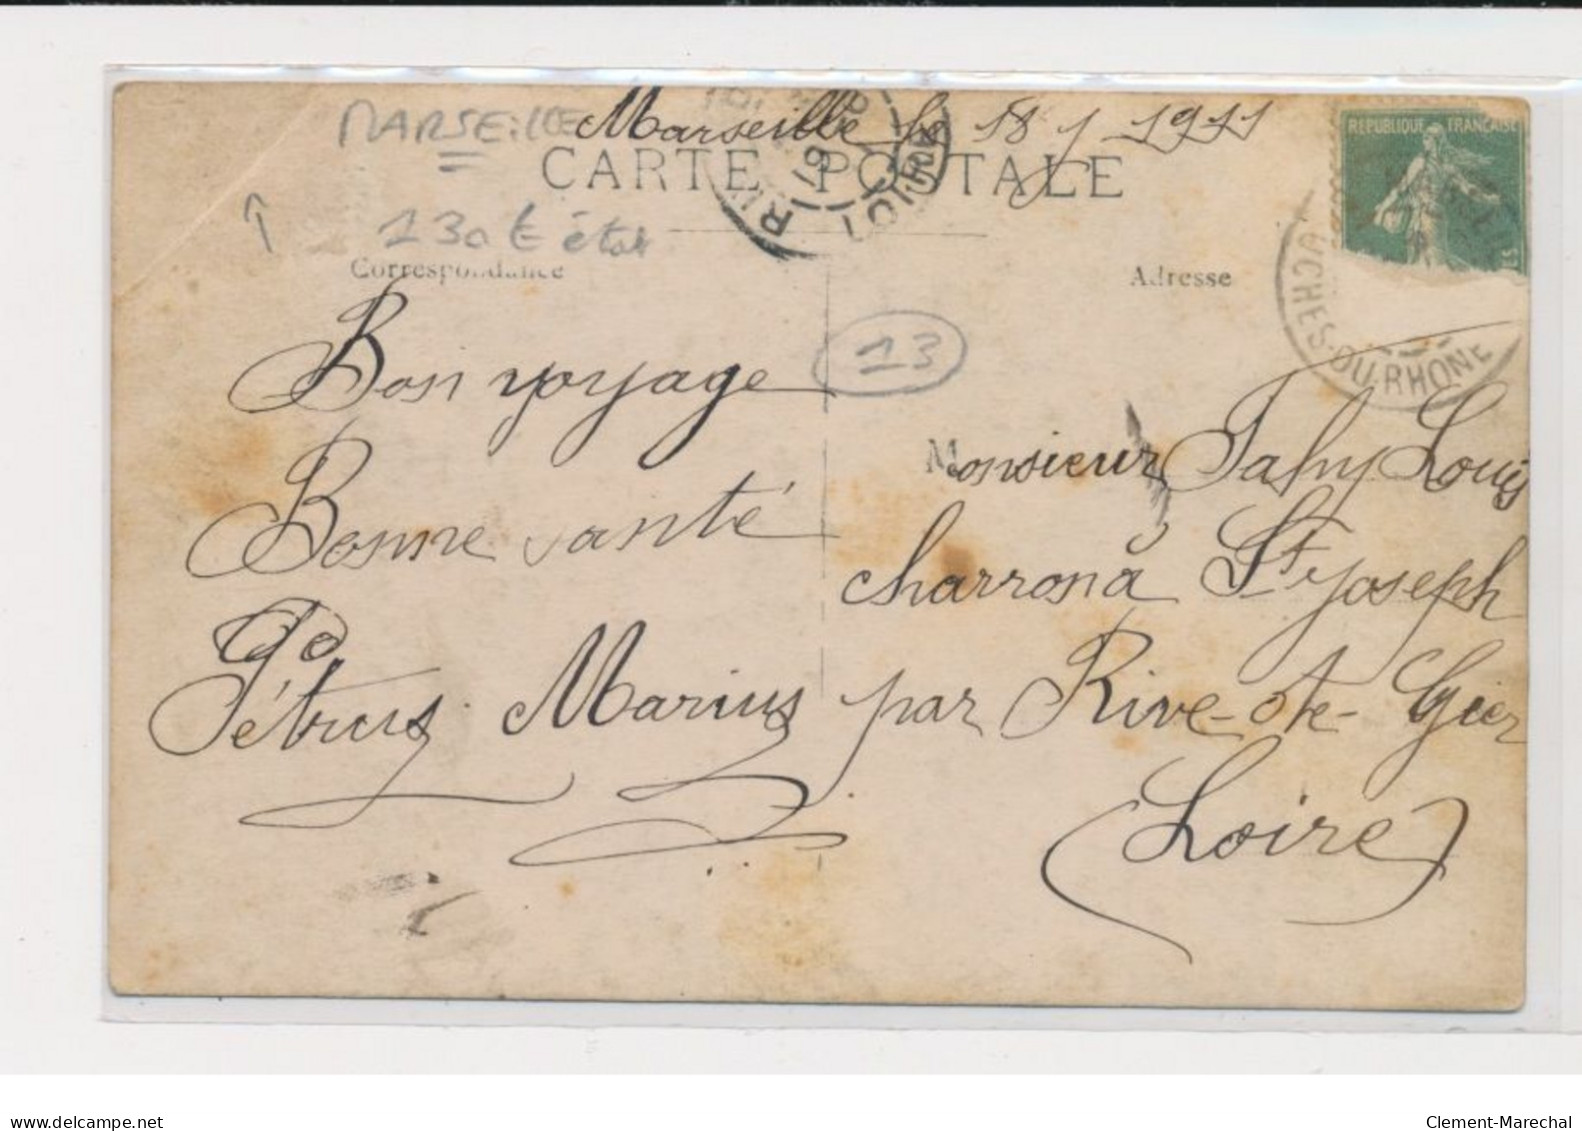 MARSEILLE
Marseille le 18 / 1 1911
CARTE POSTALE
RÉPUBLIQUE FRANÇAISE
Correspondance
Adresse
BOUCHES-DU-RHONE
13
Bon voyage
Bonne santé
Pétrus Marius
Monsieur Fahy Louis
charron à St Joseph
par Rive-de-Gier
(Loire)
www.delcampe.net
Clement-Marechal